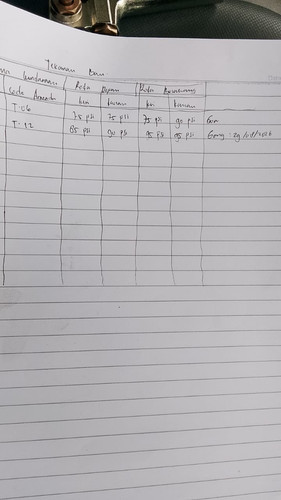 Tekanan Ban
Kendaraan Roda Depan Roda Belakang
Kode Armada kiri kanan kiri kanan
T-06 75 psi 75 psi 75 psi 90 psi
T-12 85 psi 90 psi 95 psi 95 psi